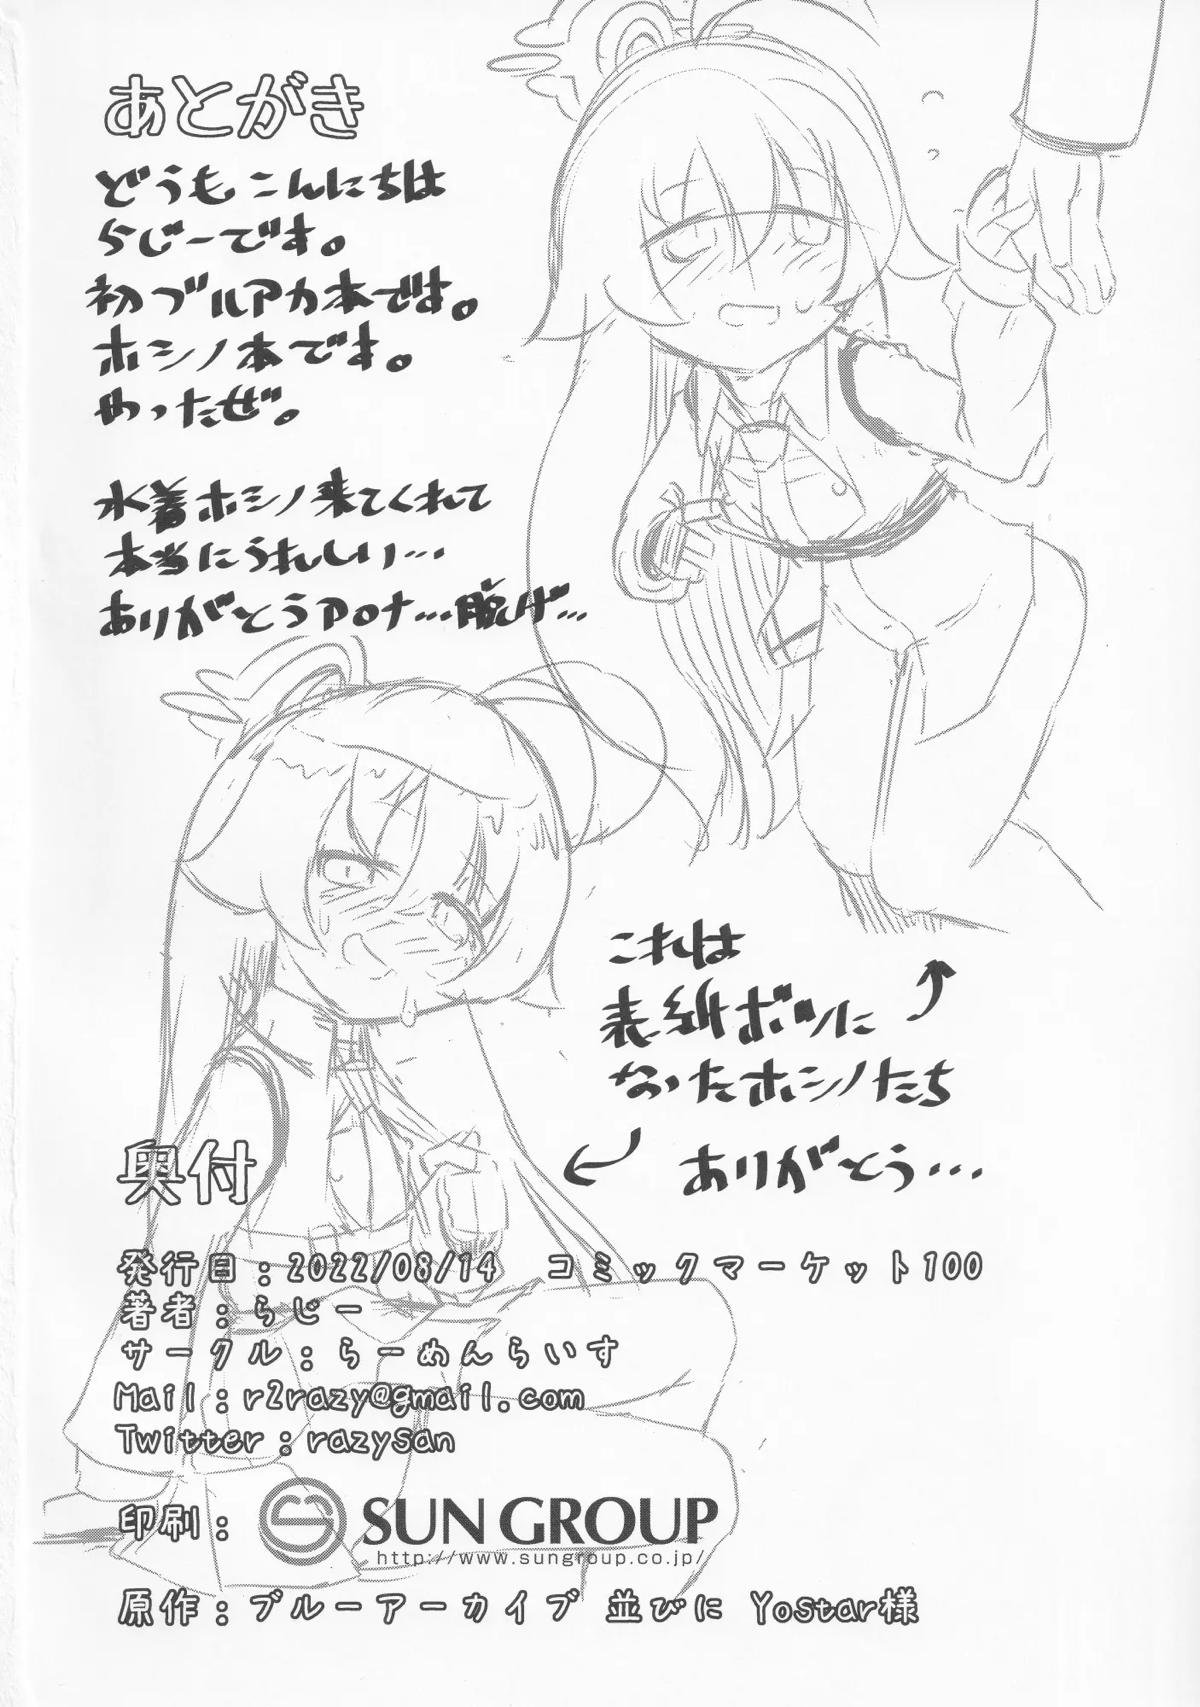 あとがき
どうもこんにちは
らじーです。
初ブルアカ本です。
ホシノ本です。
やったぜ。
水着ホシノ来てくれて
本当にうれしい…
ありがとうアロナ…脱げ…
これは
表紙ボツに
なったホシノたち
ありがとう…
奥付
発行日：2022/08/14 コミックマーケット100
著者：らじー
サークル：らーめんらいす
Mail：r2razy@gmail.com
Twitter：razysan
印刷：SUN GROUP
http://www.sungroup.co.jp/
原作：ブルーアーカイブ 並びに Yostar様